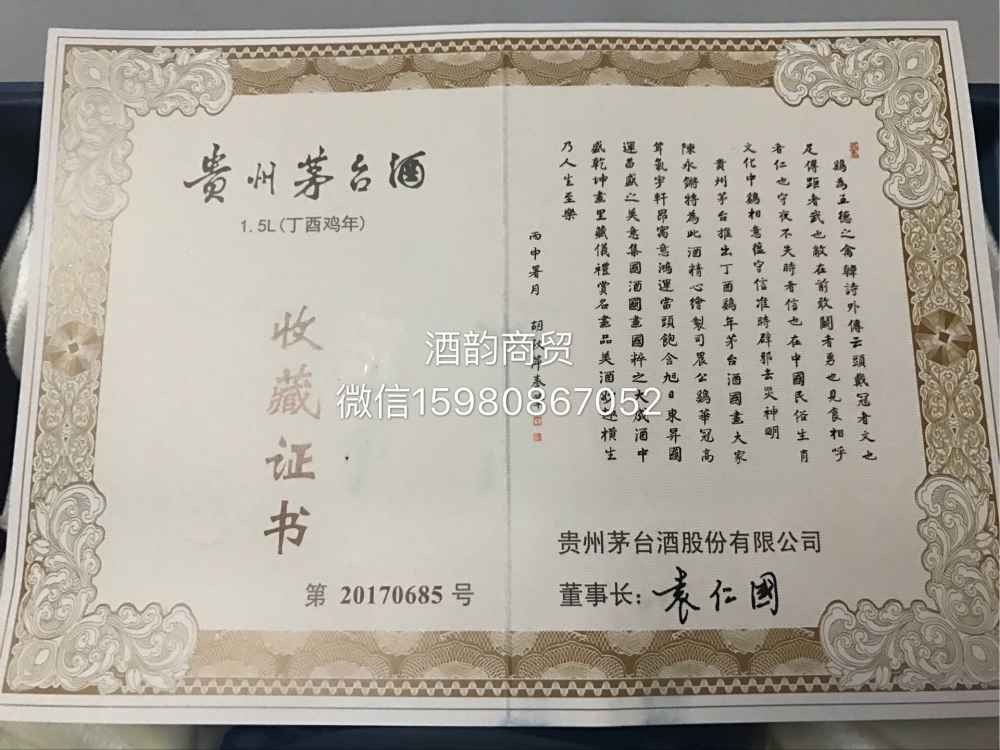 贵州茅台酒
1.5L(丁酉鸡年)
收
藏
证
书
第 20170685 号
鷄為五德之禽韓詩外傳云頭戴冠者文也
足傅距者武也敵在前敢鬭者勇也見食相呼
者仁也守夜不失時者信也在中國民俗生肖
文化中鷄相意蘊守信准時辟邪去災神明
貴州茅台推出丁酉鷄年茅台酒國畫大家
陳永鏘特為此酒精心繪製司晨公鷄華冠高
聳氣宇軒昂寓意鴻運當頭飽含旭日東昇國
運昌盛之美意集國酒國畫國粹之大成酒中
盛乾坤畫里藏儀禮賞名畫品美酒橫生
乃人生至樂
丙申署月
贵州茅台酒股份有限公司
董事长：袁仁國
酒韵商贸
微信15980867052